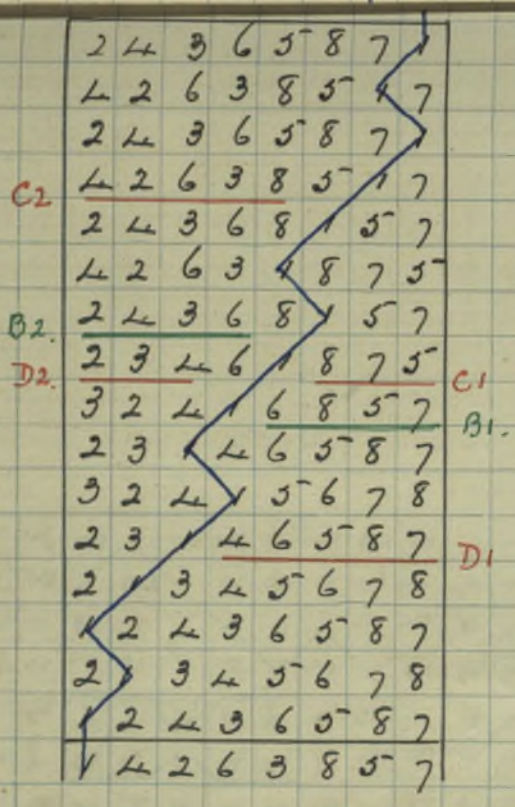 2 4 3 6 5 8 7 1
4 2 6 3 8 5 1 7
2 4 3 6 5 8 7 1
C2 4 2 6 3 8 5 1 7
2 4 3 6 8 1 5 7
4 2 6 3 1 8 7 5
B2. 2 4 3 6 8 1 5 7
D2. 2 3 4 6 1 8 7 5 C1
3 2 4 1 6 8 5 7 B1.
2 3 1 4 6 5 8 7
3 2 4 1 5 6 7 8
2 3 1 4 6 5 8 7 D1
2 1 3 4 5 6 7 8
1 2 4 3 6 5 8 7
2 1 3 4 5 6 7 8
1 2 4 3 6 5 8 7
1 4 2 6 3 8 5 7